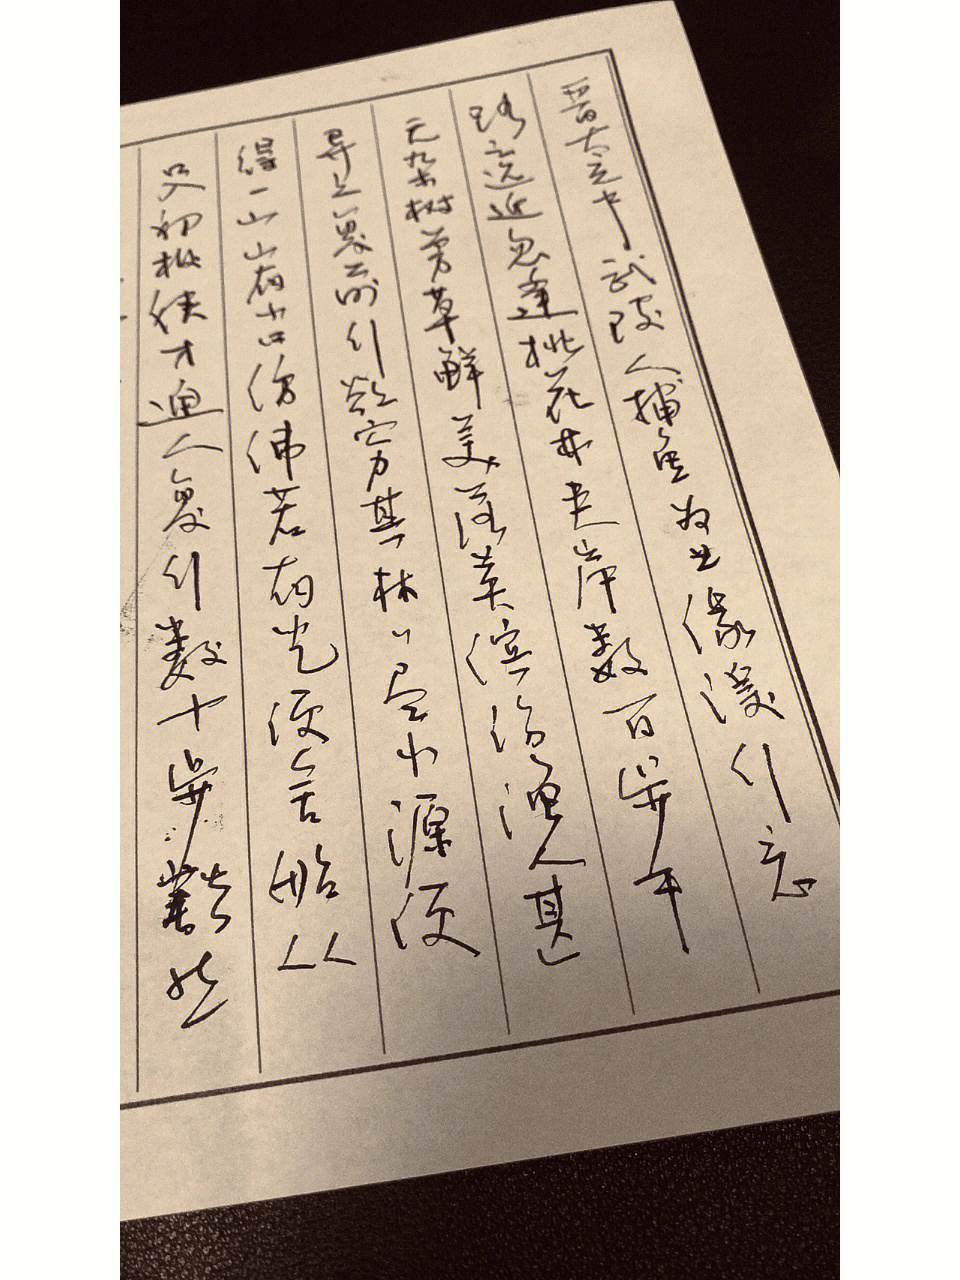 晋太元中武陵人捕鱼为业缘溪行忘
路之远近忽逢桃花林夹岸数百步中
无杂树芳草鲜美落英缤纷渔人甚
异之复前行欲穷其林〻尽水源便
得一山山有小口仿佛若有光便舍船从
口入初极狭才通人复行数十步豁然